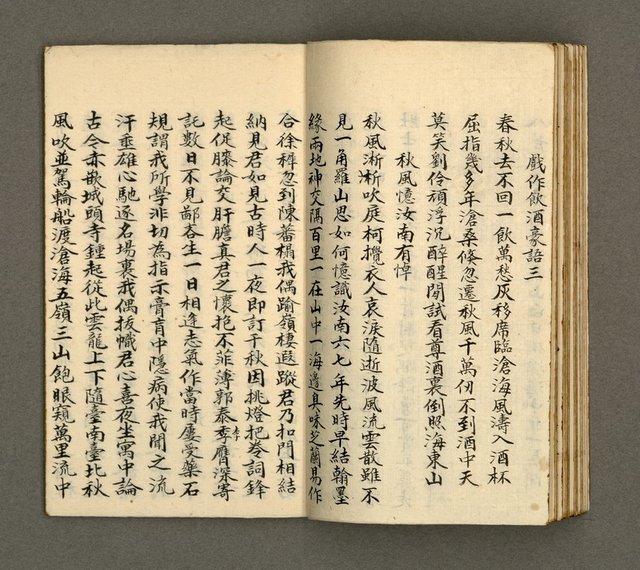 戲作飲酒豪語三
春秋去不回一飲萬愁灰移席臨滄海風濤入酒杯
屈指幾多年滄桑倏忽遷秋風千萬仞不到酒中天
莫笑劉伶頑浮沉醉醒閒試看尊酒裏倒照海東山
秋風憶汝南有悼
秋風淅淅吹庭柯攬衣人哀淚隨逝波風流雲散雖不
見一角羅山思如何憶識汝南六七年先時早結翰墨
緣兩地神交隔百里一在山中一海邊具味芝蘭易作
合徐穉忽到陳蕃榻我偶踰嶺棲遐蹤君乃扣門相結
納見君如見古時人一夜即訂千秋因挑燈把卷詞鋒
起促膝論交肝膽真君之懷抱不菲薄郭泰李膺深寄
託數日不見鄙吝生一日相逢志氣作當時屢受藥石
規謂我所學非切為指示膏肓中隱病使我聞之流
汗垂雄心馳逐名場裏我偶拔幟君心喜夜坐寓中論
古今赤嵌城頭寺鍾起從此雲龍上下隨臺南臺北秋
風吹並駕輪船渡滄海五嶺三山飽眼窺萬里流中